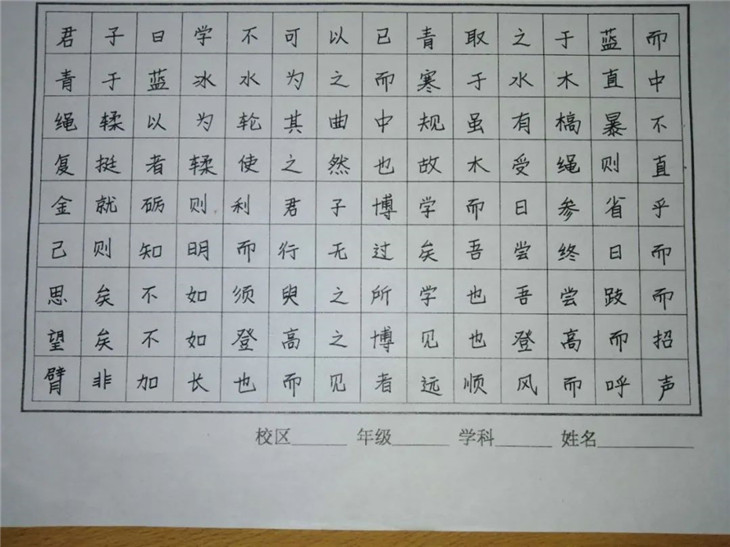 君子曰学不可以已青取之于蓝而
青于蓝冰水为之而寒于水木直中
绳輮以为轮其曲中规虽有槁暴不
复挺者輮使之然也故木受绳则直
金就砺则利君子博学而日参省乎
己则知明而行无过矣吾尝终日而
思矣不如须臾之所学也吾尝跂而
望矣不如登高之博见也登高而招
臂非加长也而见者远顺风而呼声
校区______ 年级______ 学科______ 姓名__________